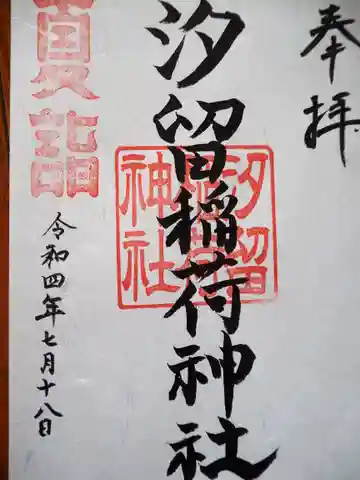 奉拝
汐留稲荷神社
汐留
稲荷
神社
夏詣
令和四年七月十八日